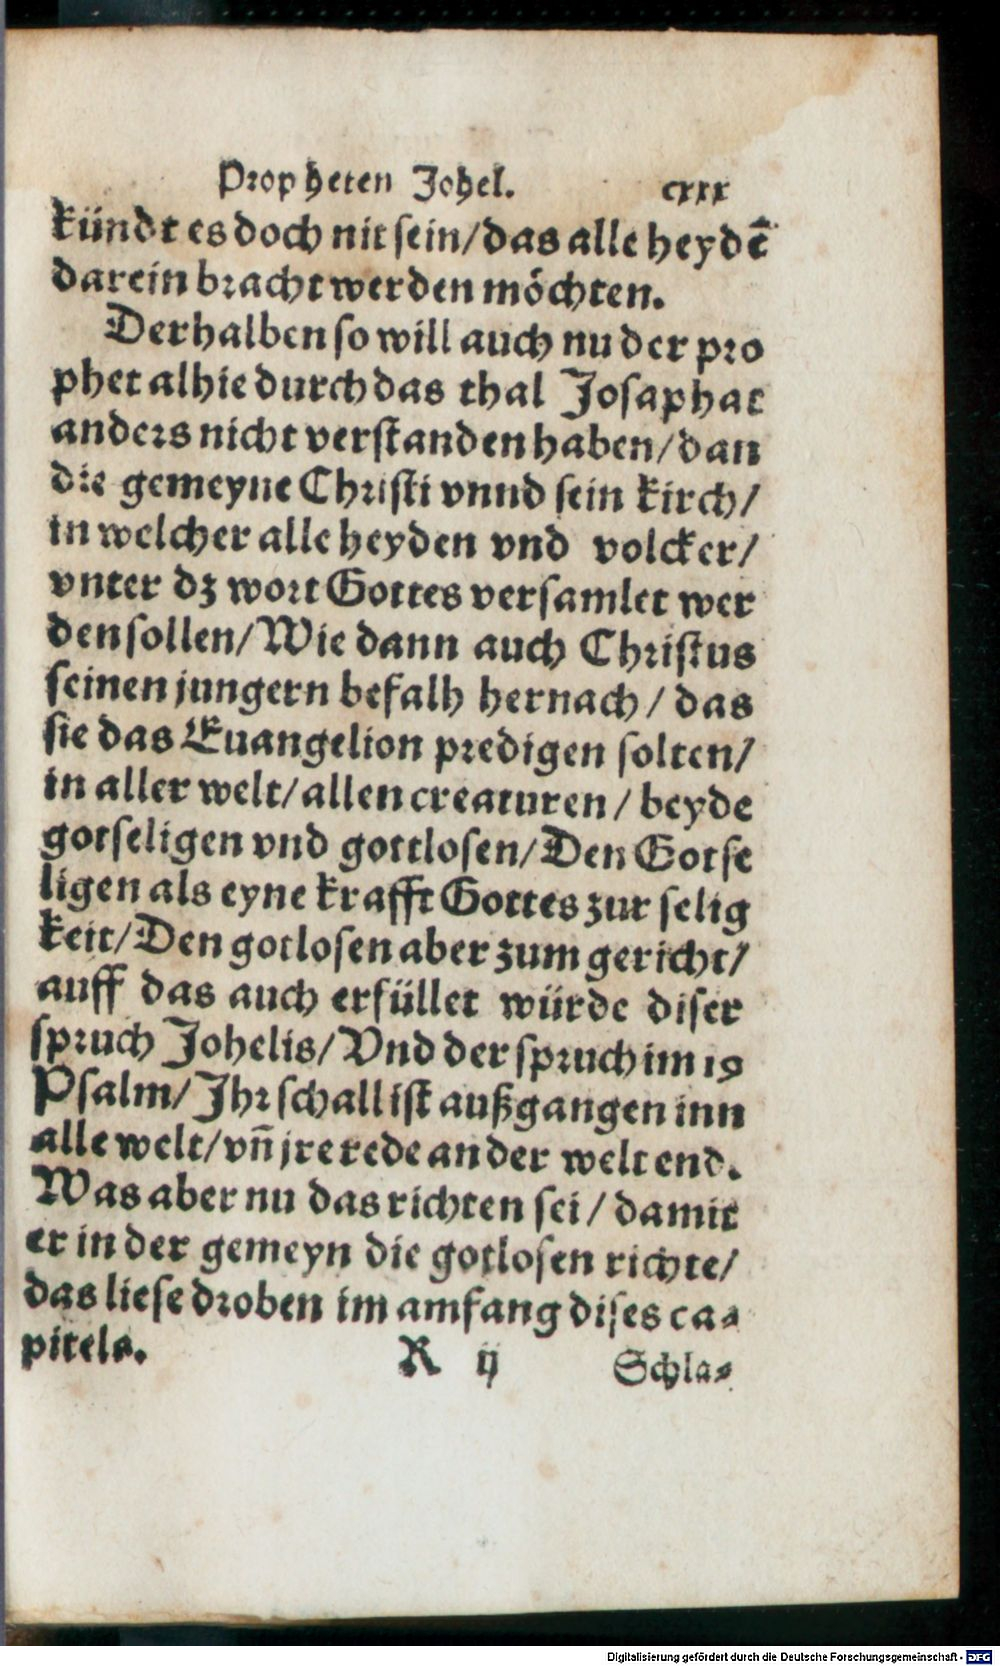 Propheten Johel. cxxx
kündt es doch nit sein/das alle heydē
darein bracht werden möchten.
Derhalben so will auch nu der pro
phet alhie durch das thal Josaphat
anders nicht verstanden haben/dan
die gemeyne Christi vnnd sein kirch/
in welcher alle heyden vnd volcker/
vnter dz wort Gottes versamlet wer
den sollen/Wie dann auch Christus
seinen jungern befalh hernach/das
sie das Euangelion predigen solten/
in aller welt/allen creaturen/beyde
gotseligen vnd gottlosen/Den Gotse
ligen als eyne krafft Gottes zur selig
keit/Den gotlosen aber zum gericht/
auff das auch erfüllet würde diser
spruch Johelis/Vnd der spruch im 19
Psalm/Ihr schall ist außgangen inn
alle welt/vñ jre rede an der welt end.
Was aber nu das richten sei/damit
er in der gemeyn die gotlosen richte/
das liese droben im amfang dises ca-
pitels. R ij Schla-
Digitalisierung gefördert durch die Deutsche Forschungsgemeinschaft - DFG